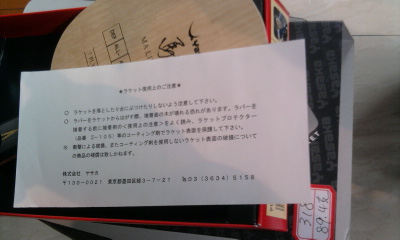 ★ラケット使用上のご注意★
○ ラケットを落としたり台にぶつけたりしないよう注意して下さい。
○ ラバーをラケットからはがす際、接着面の木が壊れる恐れがあります。ラバーを
接着する前に接着剤のご使用上の注意をよく読み、ラケットプロテクター
(品番 S-105)等のコーティング剤でラケット表面を保護して下さい。
※ 衝撃による破損、またコーティング剤を使用しないラケット表面の破損について
の商品の補償は致しかねます。
株式会社 ヤサカ
〒130-0021 東京都墨田区緑3-7-21 ℡03(3634)5158
YASAKA
318